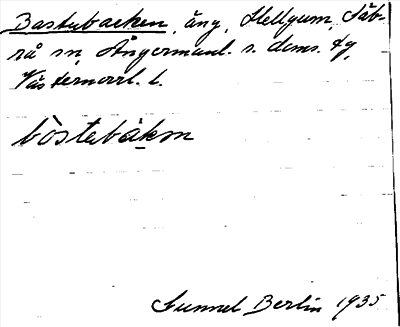 Bastubacken, äng, Hellgum, Säb-
rå sn, Ångermanl. s. doms. tg,
Västernorrl. l.
bòstebàkɐn
Gunnel Berlin 1935